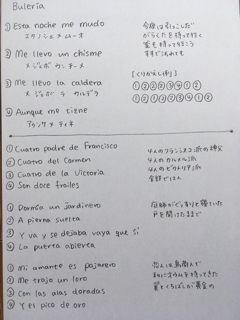 Bulería
① Esta noche me mudo
エスタ ノシェ メ ムード
② Me llevo un chisme
メ ジェボ ウン チースメ
③ Me llevo la caldera
メ ジェボ ラ カルデラ
④ Aunque me tiene
アウンケ メ ティネ
今夜は引っこしだ
がらくたを持って行く
釜も持って行こう
[くりかえし例]
① Cuatro padre de Francisco
② Cuatro del Carmen
③ Cuatro de la Victoria
④ Son doce frailes
4人のフランシスコ派の神父
4人のカルメル派
4人のビクトリア派
全部で12人
① Dormía un jardinero
② A pierna suelta
③ Y va y se dejaba vaya que si
④ La puerta abierta
庭師がぐっすりと寝ていた
戸を開けたままで
① Mi amante es pajarero
② Me trajo un loro
③ Con las alas doradas
④ Y el pico de oro
恋人は鳥商人で
私にオウムを持ってきた
翼とくちばしが黄金の